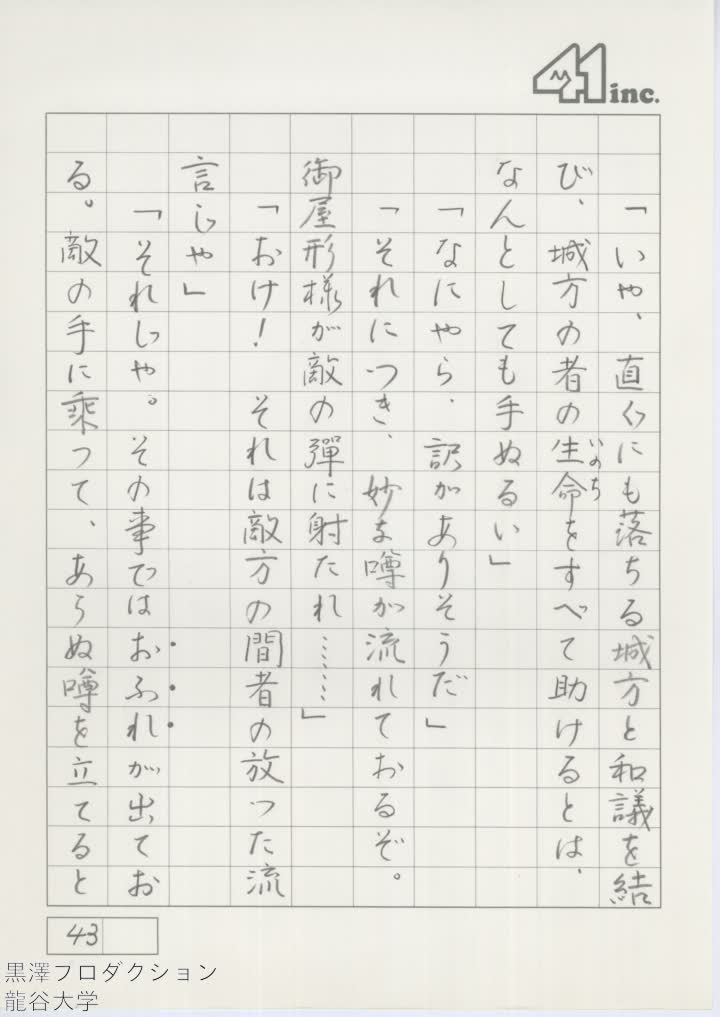 41 inc.
「いや、直ぐにも落ちる城方と和議を結
び、城方の者の生命をすべて助けるとは、
いのち
なんとしても手ぬるい」
「なにやら、訳がありそうだ」
「それにつき、妙な噂が流れておるぞ。
御屋形様が敵の彈に射たれ……」
「おけ！　それは敵方の間者の放った流
言じゃ」
「それじゃ。その事ではおふれが出てお
る。敵の手に乗って、あらぬ噂を立てると
43
黒澤プロダクション
龍谷大学